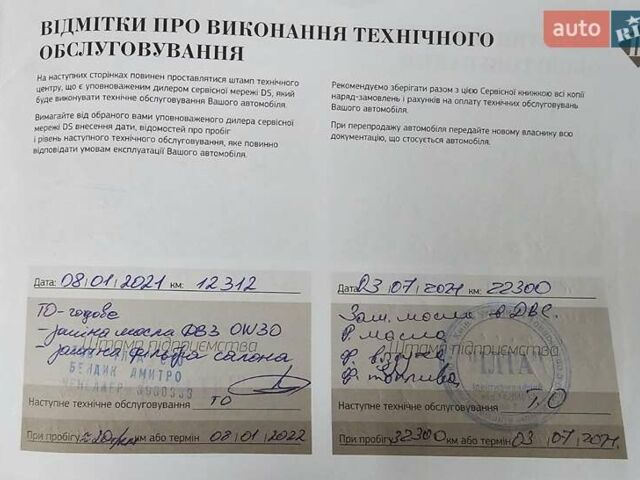 auto
RIA
ВІДМІТКИ ПРО ВИКОНАННЯ ТЕХНІЧНОГО
ОБСЛУГОВУВАННЯ
На наступних сторінках повинен проставлятися штамп технічного
центру, що є уповноваженим дилером сервісної мережі DS, який
буде виконувати технічне обслуговування Вашого автомобіля.
Вимагайте від обраного вами уповноваженого дилера сервісної
мережі DS внесення дати, відомостей про пробіг
і рівень наступного технічного обслуговування, яке повинно
відповідати умовам експлуатації Вашого автомобіля.
Рекомендуємо зберігати разом з цією Сервісної книжкою всі копії
наряд-замовлень і рахунків на оплату технічних обслуговувань
Вашого автомобіля.
При перепродажу автомобіля передайте новому власнику всю
документацію, що стосується автомобіля.
Дата: 08 01 2021 км: 12312
ТО-годове
- заміна масла ДВЗ 0W30
- заміна фільтра салона
Штамп підприємства
БЕНДИК ДМИТРО
МЕНЕДЖЕР
Наступне технічне обслуговування ТО
При пробігу км або термін 08 01 2022
Дата: 03 07 2021 км: 22300
Зам. масла в ДВС.
Ф. масла
Штамп підприємства
Ф. топлива
Наступне технічне обслуговування ТО
При пробігу 32300 км або термін 03 07